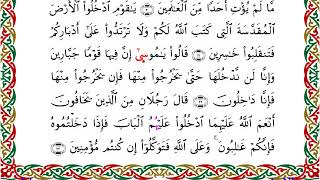 مَّا لَمْ يُؤْتِ أَحَدًا مِّنَ ٱلْعَٰلَمِينَ ۝ يَٰقَوْمِ ٱدْخُلُوا۟ ٱلْأَرْضَ
ٱلْمُقَدَّسَةَ ٱلَّتِى كَتَبَ ٱللَّهُ لَكُمْ وَلَا تَرْتَدُّوا۟ عَلَىٰٓ أَدْبَارِكُمْ
فَتَنقَلِبُوا۟ خَٰسِرِينَ ۝ قَالُوا۟ يَٰمُوسَىٰٓ إِنَّ فِيهَا قَوْمًا جَبَّارِينَ
وَإِنَّا لَن نَّدْخُلَهَا حَتَّىٰ يَخْرُجُوا۟ مِنْهَا فَإِن يَخْرُجُوا۟ مِنْهَا
فَإِنَّا دَٰخِلُونَ ۝ قَالَ رَجُلَانِ مِنَ ٱلَّذِينَ يَخَافُونَ
أَنْعَمَ ٱللَّهُ عَلَيْهِمَا ٱدْخُلُوا۟ عَلَيْهِمُ ٱلْبَابَ فَإِذَا دَخَلْتُمُوهُ
فَإِنَّكُمْ غَٰلِبُونَ ۚ وَعَلَى ٱللَّهِ فَتَوَكَّلُوٓا۟ إِن كُنتُم مُّؤْمِنِينَ ۝